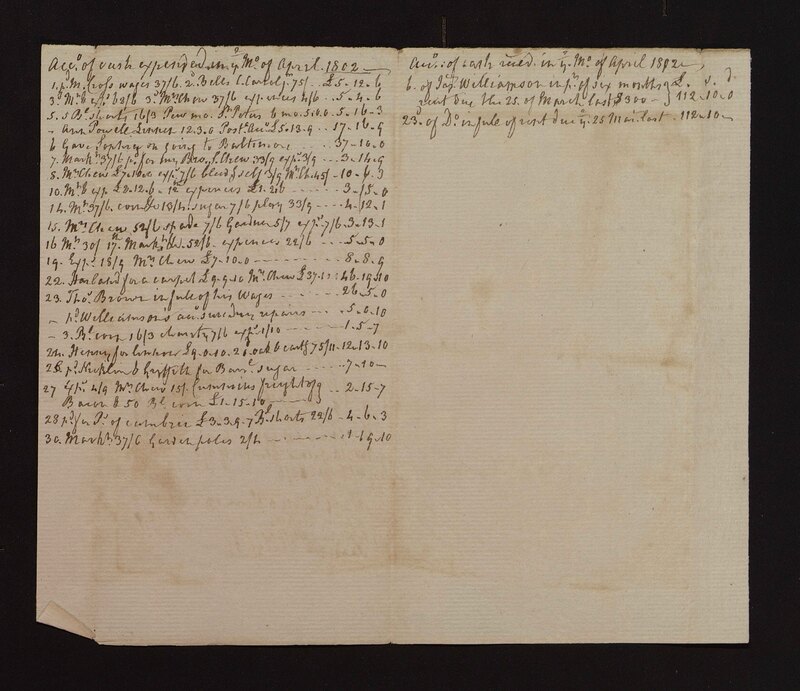 Acc.o of cash expended in y.e Mo. of April 1802
1. p.d M. Cross wages 37/6. 2. Bells C. Carol j.r 75/ .. £5-12-6
3. M.t & exp.s 62/6 3.d M.rs Chew 37/6 expences 4/6 .. 5-4-6
5. 5 B.l shorts 16/3 Pew mo. S.t Peters 6 mo. 5.0.0. 5-16-3
- Ann Powell Linnen 12.3.0 Post.e Acc.t £5.13.9 - 17-16-9
6 Gave Sophia on going to Baltimore .. 37-10-0
7. Mark.t 37/6 p.d for my Bro. S. Chew 33/9 exp.s 3/9 --- 3-14-9
8. M.rs Chew £7.10.0 exp.s 7/6 self 3/9 M.r Ch. 45/ -10-6-3
10. M.t & exp. £2-12-6 - 12.th expences £1.2.6 ---- 3-15-0
14. M.t 37/6. 13/4. sugar 7/6 play 33/9 ---- 4-12-1
15. M.rs Chew 52/6 spade 7/6 Gardner 5/7 exp.s 7/6-3-13-1
16 M.t 30/ 17. Mark.t &c. 52/6 - expences 22/6 --- 5-5-0
19. Exp.s 18/9 M.rs Chew £7-10-0 ------- 8-8-9
22. for a carpet £9-9-10 M.rs Chew £37-10: 46-19-10
23. Tho.s Brown in full of his Wages ------ 26-5-0
- p.d Williamson's acc.t sundry repairs ---- 5-0-10
- 3. B.l corn 16/3 charity 7/6 exp.s 1/10 ------ 1-5-7
24. Henry for £9.0.10. 2 75/11-12-13-10
26 p.d & Griffith for Barr.l sugar ---- 7-10-
27 Exp.s 4/9 M.rs Chew 15/. freight of -- 2-15-7
Bacon & 50 B.l corn £1-15-10 ----
28 p.d for P.s of cambric £3-3-9-7 B.l shorts 22/6 - 4-6-3
30. Mark.t 37/6 Garden poles 2/4 ------- 1-19-10
Acc.o: of cash rec.d in y.e Mo. of April 1802
6. of Ja.s Williamson in p.t of six months £. s. d
rent due the 25. of March last $300 - } 112-10-0
23. of D.o in full of rent due y.e 25 Mar. last - 112-10-